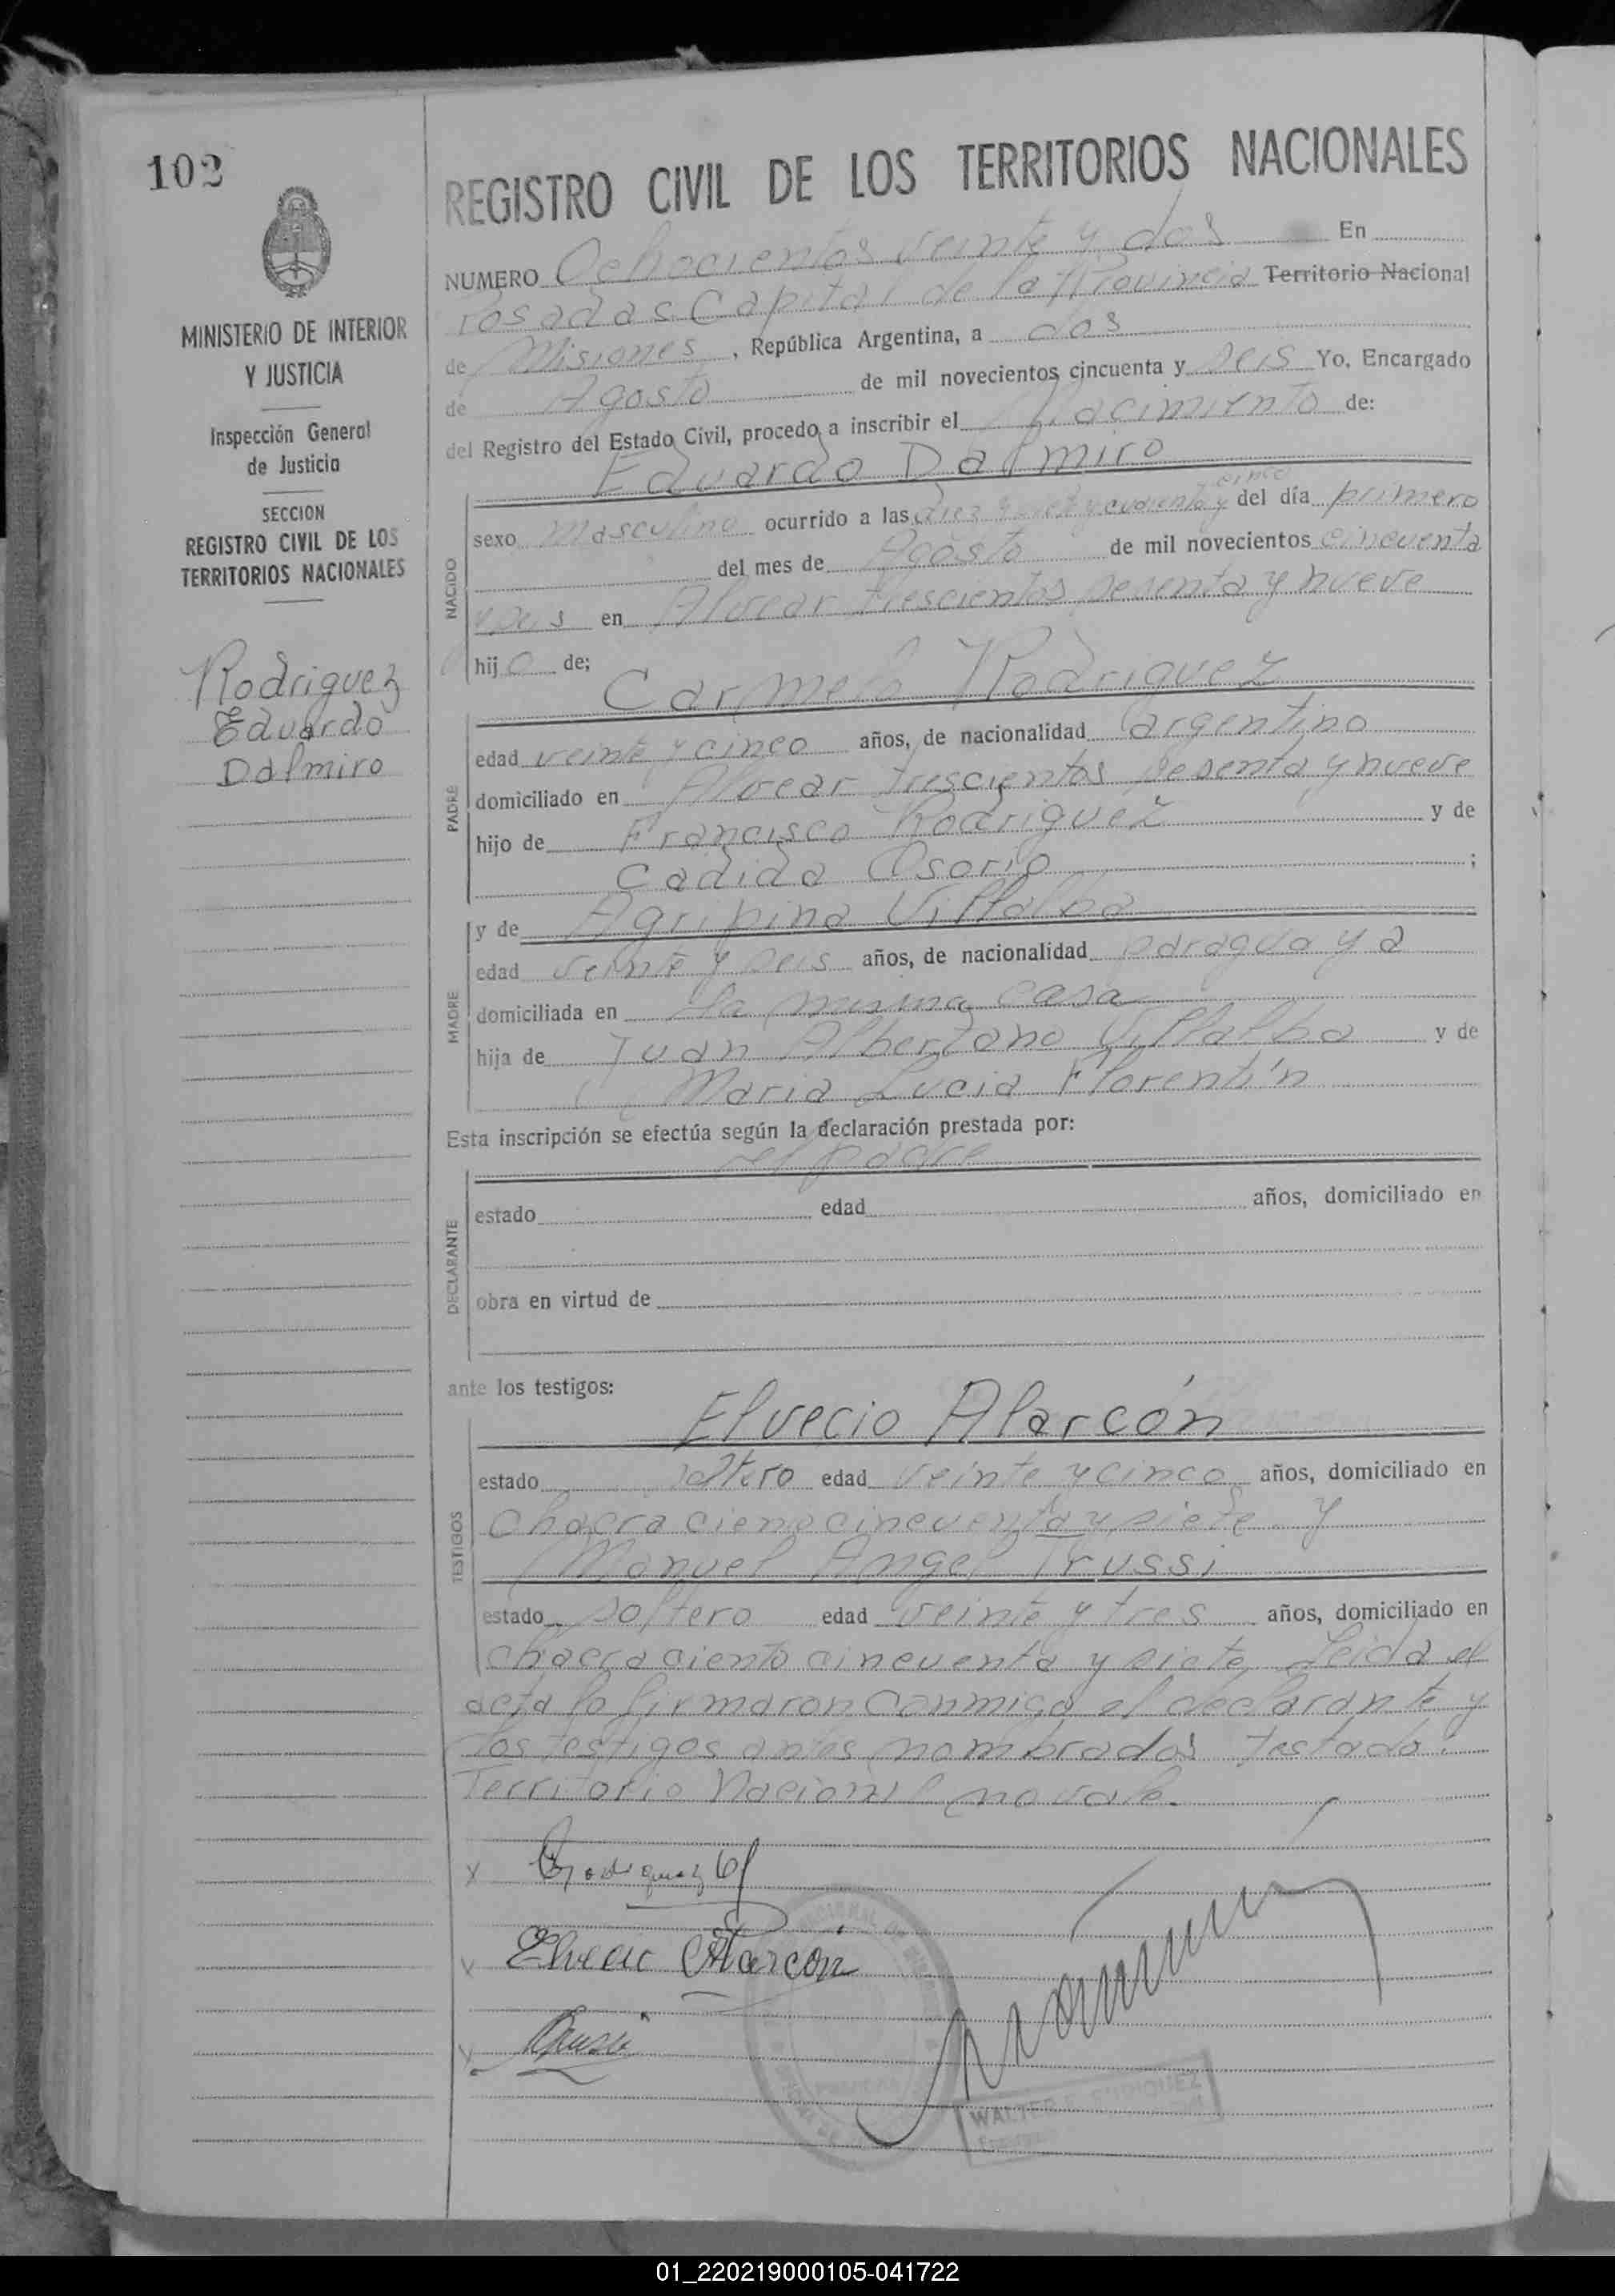 102
MINISTERIO DE INTERIOR
Y JUSTICIA
Inspección General
de Justicia
SECCION
REGISTRO CIVIL DE LOS
TERRITORIOS NACIONALES
Rodriguez
Eduardo
Dalmiro
REGISTRO CIVIL DE LOS TERRITORIOS NACIONALES
NUMERO Ochocientos veinte y dos En
Posadas Capital de la Provincia Territorio Nacional
de Misiones, República Argentina, a dos
de Agosto de mil novecientos cincuenta y seis Yo, Encargado
del Registro del Estado Civil, procedo a inscribir el Nacimiento de:
Eduardo Dalmiro
cinco
NACIDO
sexo Masculino ocurrido a las diez y siete y cuarenta y del día primero
del mes de Agosto de mil novecientos cincuenta
y seis en Alvear trescientos sesenta y nueve
hijo de;
Carmelo Rodriguez
PADRE
edad veinte y cinco años, de nacionalidad argentino
domiciliado en Alvear trescientos sesenta y nueve
hijo de Francisco Rodriguez y de
Cadida Osorio ;
y de Agripina Villalba
MADRE
edad veinte y seis años, de nacionalidad paraguaya
domiciliada en la misma casa
hija de Juan Albertano Villalba y de
Maria Lucia Florentín
Esta inscripción se efectúa según la declaración prestada por:
el padre
DECLARANTE
estado edad años, domiciliado en
obra en virtud de
ante los testigos:
Elvecio Alarcón
TESTIGOS
estado soltero edad veinte y cinco años, domiciliado en
chacra cieno cincuenta y siete y
Manuel Angel Trussi
estado soltero edad veinte y tres años, domiciliado en
chacra ciento cincuenta y siete Leida el
acta la firmaron conmigo el declarante y
los testigos antes nombrados testado:
Territorio Nacional no vale.
x Rodriguez
x Elvecio Alarcón
x Trussi
WALTER ENRIQUEZ
01_220219000105-041722